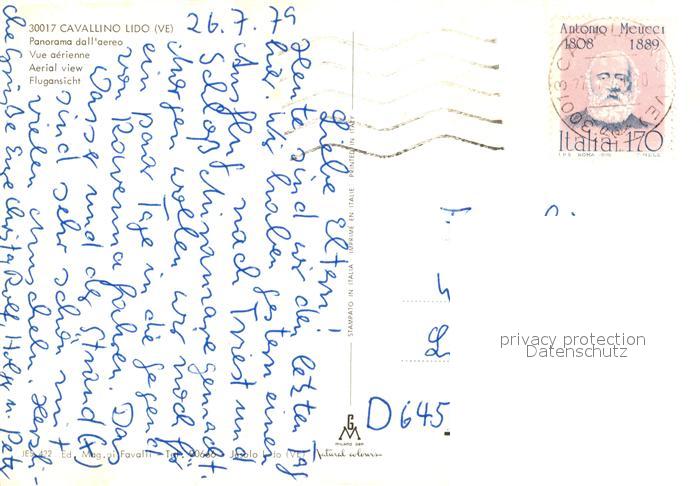 30017 CAVALLINO LIDO (VE)
Panorama dall'aereo
Vue aérienne
Aerial view
Flugansicht
26. 7. 79
Liebe Eltern!
Heute sind wir den letzten Tag
hier. Wir haben gestern einen
Ausflug nach Triest und
Schloß Miramare gemacht.
Morgen wollen wir noch für
ein paar Tage in die Gegend
von Ravenna fahren. Das
Wasser und der Strand (+)
sind sehr schön mit
vielen Muscheln. Herzli-
che Grüße Eure Christa, Rolf, Holger u. Peter
Antonio Meucci
1808 1889
Italia 170
STAMPATO IN ITALIA IMPRIMÉ EN ITALIE PRINTED IN ITALY
D 645
privacy protection
Datenschutz
MILANO
Ed. Mag.ni Favalli - Jesolo Lido (VE)
Natural colours